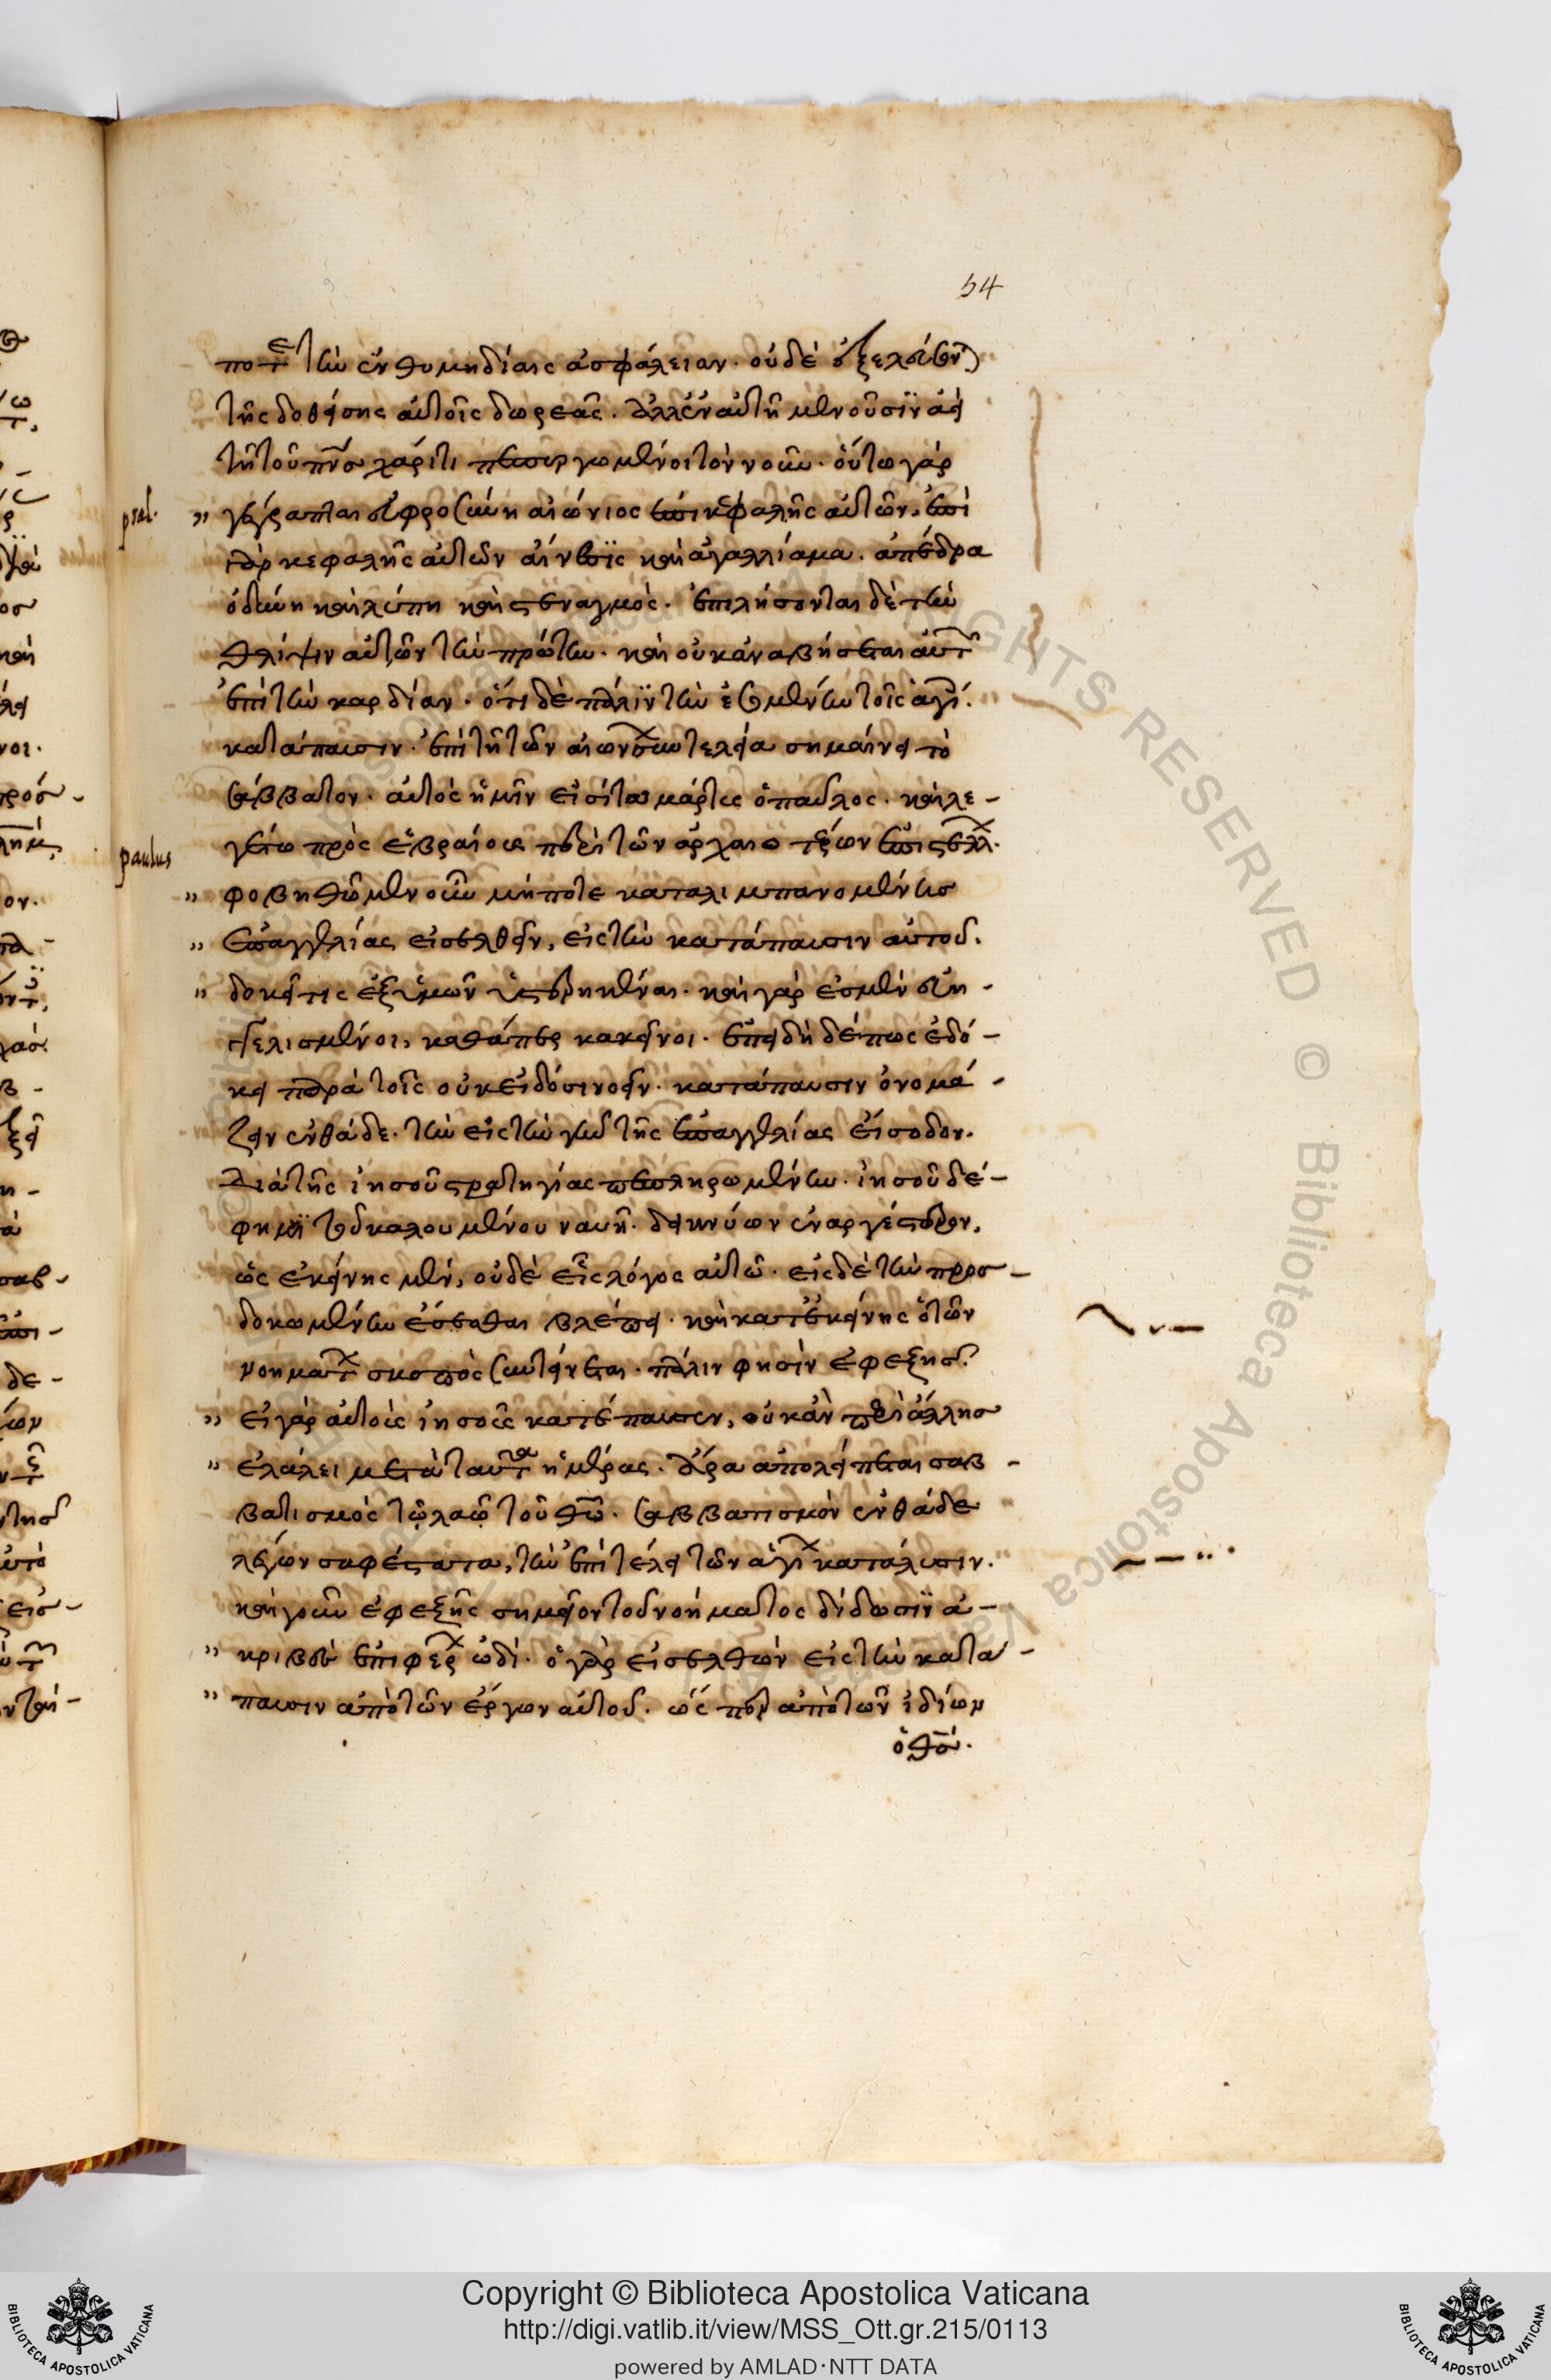 54
ποτε τὴν ἐν θυμηδίαις ἀσφάλειαν. οὐδὲ ἐξελεύσεται
τῆς δοθείσης αὐτοῖς δωρεᾶς. ἀλλ' ἐν αὐτῇ μένουσιν ἀεὶ
τῇ τοῦ πνσ χάριτι τὸν νοῦν. οὕτω γὰρ
psal. " γέγραπται εὐφροσύνη αἰώνιος ἐπὶ κεφαλῆς αὐτῶν. ἐπὶ
γὰρ κεφαλῆς αὐτῶν αἴνεσις καὶ ἀγαλλίαμα. ἀπέδρα
ὀδύνη καὶ λύπη καὶ στεναγμός. ἐπιλήσονται δὲ τὴν
θλίψιν αὐτῶν τὴν πρώτην. καὶ οὐκ ἀναβήσεται αὐτῶν
ἐπὶ τὴν καρδίαν. ὅτι δὲ πάλιν τὴν ἐσομένην τοῖς ἁγί.
κατάπαυσιν. ἐπὶ τῇ τῶν αἰώνων συντελεία σημαίνει τὸ
σάββατον. αὐτὸς ἡμῖν εἰσίτω μάρτυς ὁ παῦλος. καὶ λε-
paulus γέτω πρὸς ἑβραίους περὶ τῶν ἀρχαιοτέρων ἐπιστέλλ.
" φοβηθῶμεν οὖν μήποτε καταλιμπανομένης
" ἐπαγγελίας εἰσελθεῖν, εἰς τὴν κατάπαυσιν αὐτοῦ.
" δοκεῖ τις ἐξ ὑμῶν ὑστερηκέναι. καὶ γάρ ἐσμεν εὐη-
γγελισμένοι, καθάπερ κακεῖνοι. ἐπειδὴ δέ πως ἐδό-
κει παρὰ τοῖς οὐκ εἰδόσι νοεῖν. κατάπαυσιν ὀνομά-
ζειν ἐνθάδε. τὴν εἰς τὴν γῆν τῆς ἐπαγγελίας εἴσοδον.
διὰ τῆς ἰησοῦ στρατηγίας πεπληρωμένην. ἰησοῦ δέ-
φημι τοῦ καλουμένου ναυῆ. δεικνύων ἐναργέστερον,
ὡς ἐκείνης μέν, οὐδὲ εἷς λόγος αὐτῶ. εἰς δὲ τὴν προσ-
δοκωμένην ἔσεσθαι βλέπει. καὶ κατ' ἐκείνης ὁ τῶν
νοημάτων σκοπὸς συντείνεται. πάλιν φησὶν ἐφεξῆσ.
" εἰ γὰρ αὐτοὺς ἰησοῦς κατέπαυσεν, οὐκ ἂν περὶ ἄλλησ
" ἐλάλει μετὰ ταῦτα ἡμέρας. ἄρα ἀπολείπεται σαβ-
βατισμὸς τῷ λαῷ τοῦ θυ. σαββατισμὸν ἐνθάδε
λέγων σαφέστατα, τὴν ἐπὶ τέλει τῶν ἁγίων κατάλυσιν.
καὶ γοῦν ἐφεξῆς σημεῖον τοῦ νοήματος δίδωσιν ἀ-
" κριβὲς ἐπιφέρων ὡδί. ὁ γὰρ εἰσελθὼν εἰς τὴν κατα-
" παυσιν ἀπὸ τῶν ἔργων αὐτοῦ. ὥσπερ ἀπὸ τῶν ἰδίων
ὁ θσ.
Copyright © Biblioteca Apostolica Vaticana
http://digi.vatlib.it/view/MSS_Ott.gr.215/0113
powered by AMLAD·NTT DATA